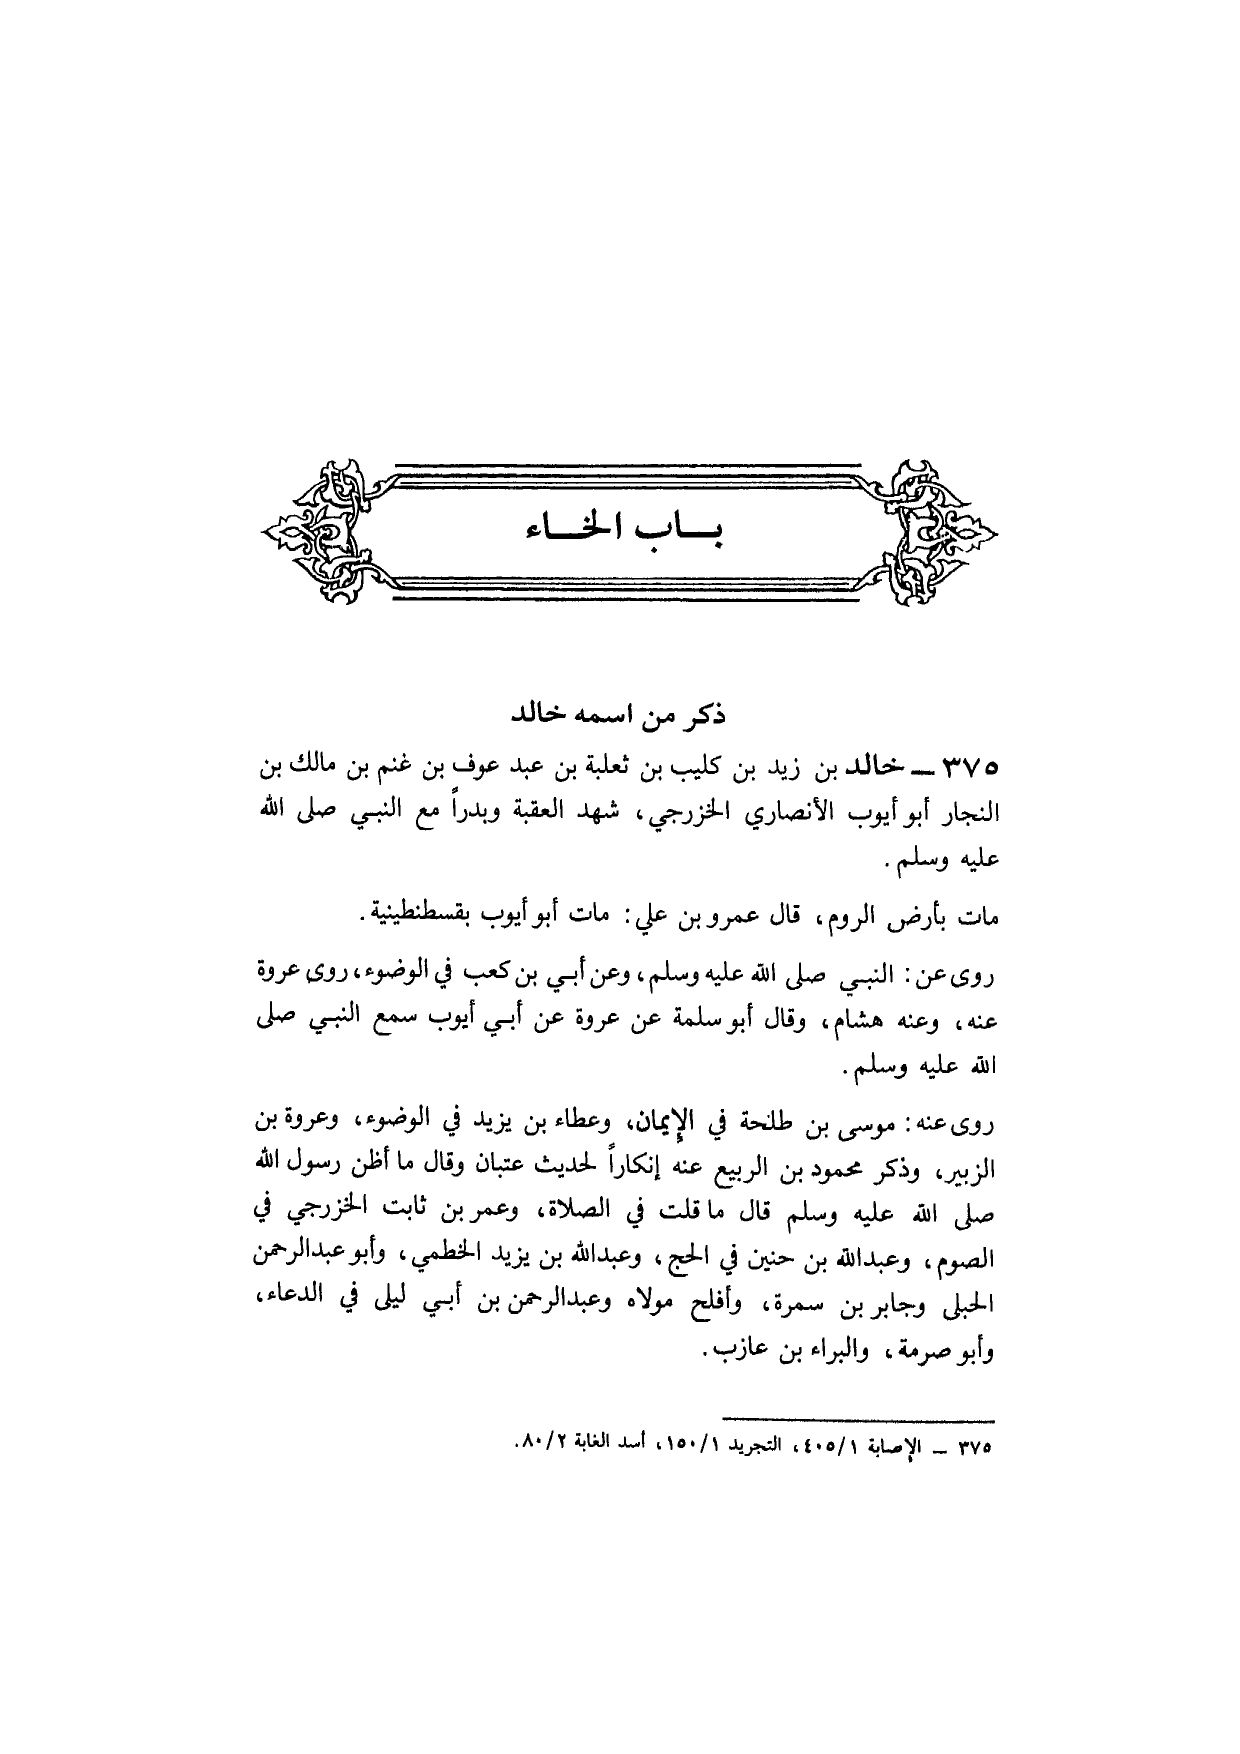 بـــاب الخـــاء
ذكر من اسمه خالد
٣٧٥ ــ خالد بن زيد بن كليب بن ثعلبة بن عبد عوف بن غنم بن مالك بن
النجار أبو أيوب الأنصاري الخزرجي، شهد العقبة وبدراً مع النبي صلى الله
عليه وسلم.
مات بأرض الروم، قال عمرو بن علي: مات أبو أيوب بقسطنطينية.
روى عن: النبي صلى الله عليه وسلم، وعن أبي بن كعب في الوضوء، روى عروة
عنه، وعنه هشام، وقال أبو سلمة عن عروة عن أبي أيوب سمع النبي صلى
الله عليه وسلم.
روى عنه: موسى بن طلحة في الإيمان، وعطاء بن يزيد في الوضوء، وعروة بن
الزبير، وذكر محمود بن الربيع عنه إنكاراً لحديث عتبان وقال ما أظن رسول الله
صلى الله عليه وسلم قال ما قلت في الصلاة، وعمر بن ثابت الخزرجي في
الصوم، وعبدالله بن حنين في الحج، وعبدالله بن يزيد الخطمي، وأبو عبدالرحمن
الحبلى وجابر بن سمرة، وأفلح مولاه وعبدالرحمن بن أبي ليلى في الدعاء،
وأبو صرمة، والبراء بن عازب.
٣٧٥ ــ الإصابة ٤٠٥/١، التجريد ١٥٠/١، أسد الغابة ٨٠/٢.